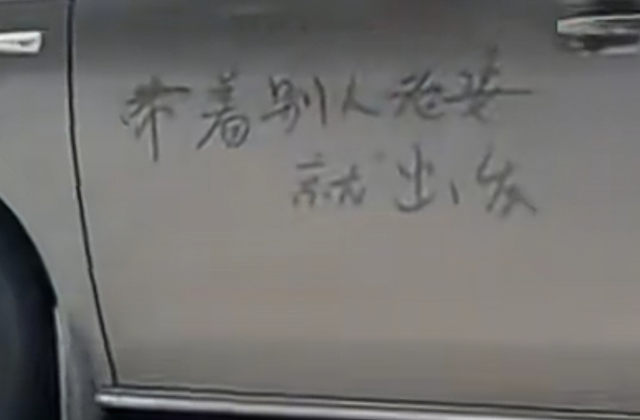 带着别人老婆
就出发